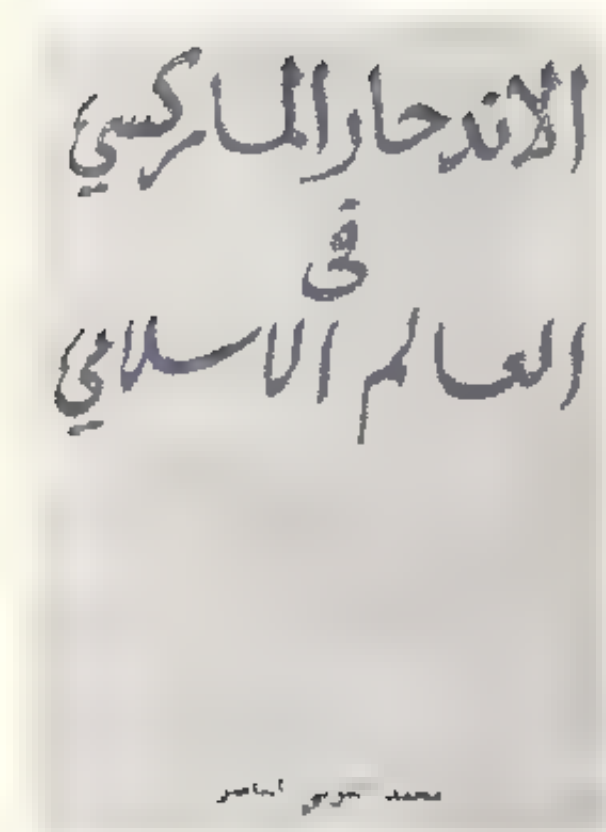 الاندحار الماركسي
في
العالم الاسلامي
محمد